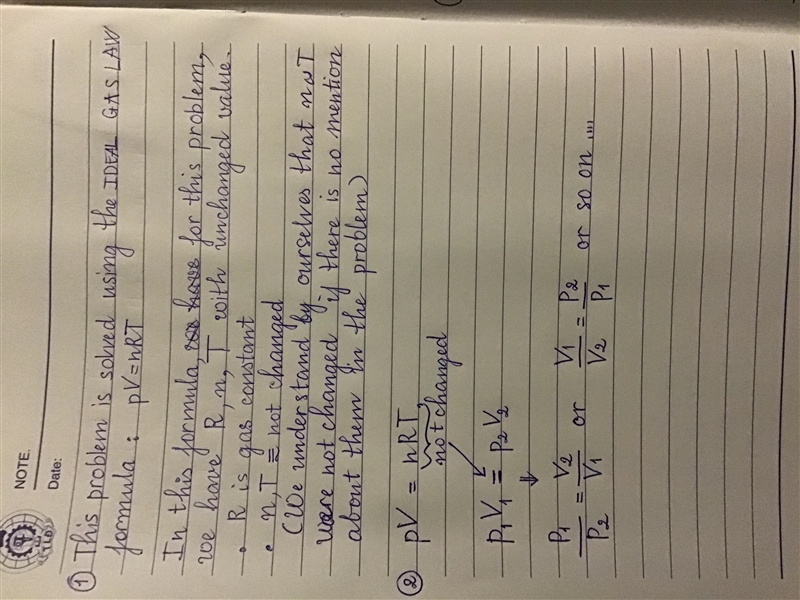 NOTE.
Date:
① This problem is solved using the IDEAL GAS LAW
formula : pV = nRT
In this formula, we have for this problem,
we have R, n, T with unchanged value.
• R is gas constant
• n, T = not changed
(We understand by ourselves that n & T
were not changed if there is no mention
about them in the problem)
② pV = nRT
not changed
P1V1 = P2V2
⇓
P1/P2 = V2/V1 or V1/V2 = P2/P1 or so on ....